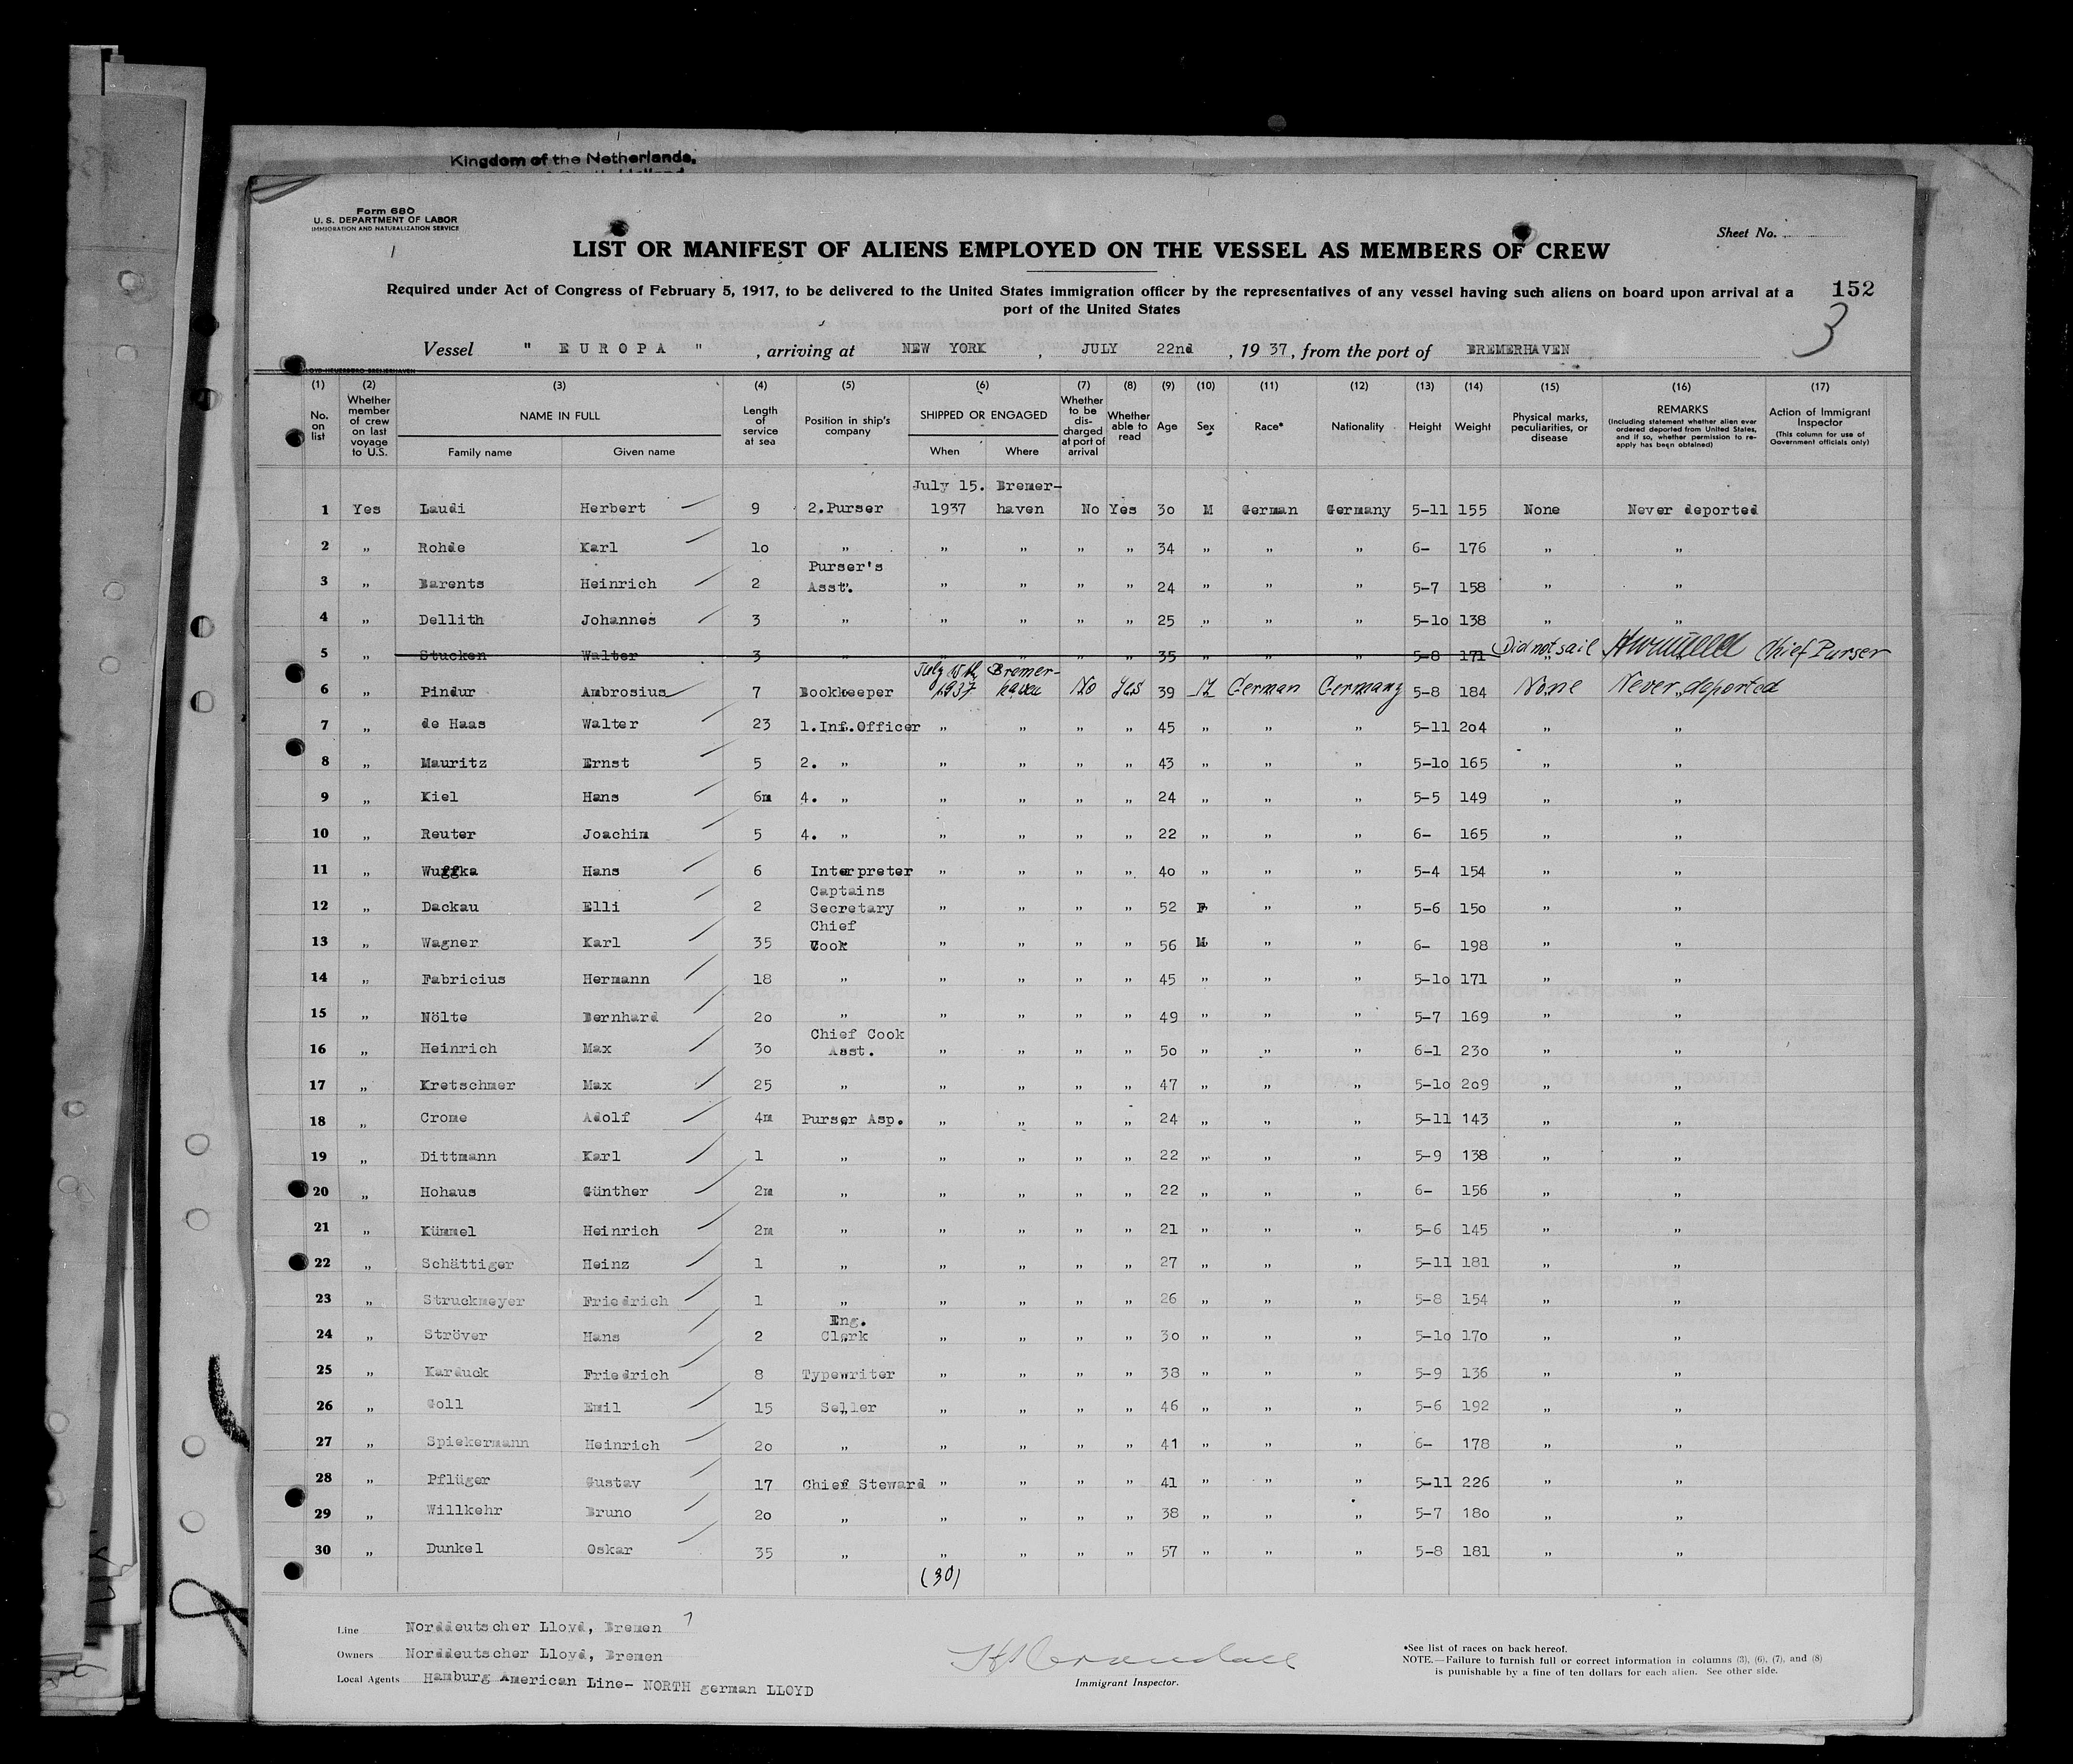 Kingdom of the Netherlands,
Form 680
U. S. DEPARTMENT OF LABOR
IMMIGRATION AND NATURALIZATION SERVICE
Sheet No.
LIST OR MANIFEST OF ALIENS EMPLOYED ON THE VESSEL AS MEMBERS OF CREW
Required under Act of Congress of February 5, 1917, to be delivered to the United States immigration officer by the representatives of any vessel having such aliens on board upon arrival at a
port of the United States
152
3
Vessel " EUROPA " , arriving at NEW YORK , JULY 22nd , 19 37, from the port of BREMERHAVEN
(1) (2) (3) (4) (5) (6) (7) (8) (9) (10) (11) (12) (13) (14) (15) (16) (17)
No. on list Whether member of crew on last voyage to U.S. NAME IN FULL Family name Given name Length of service at sea Position in ship's company SHIPPED OR ENGAGED When Where Whether to be discharged at port of arrival Whether able to read Age Sex Race* Nationality Height Weight Physical marks, peculiarities, or disease REMARKS (Including statement whether alien ever ordered deported from United States, and if so, whether permission to reapply has been obtained) Action of Immigrant Inspector (This column for use of Government officials only)
July 15. Bremer-
1 Yes Laudi Herbert 9 2.Purser 1937 haven No Yes 3o M German Germany 5-11 155 None Never deported
2 „ Rohde Karl 1o „ „ „ „ „ 34 „ „ „ 6- 176 „ „
Purser's
3 „ Barents Heinrich 2 Asst. „ „ „ „ 24 „ „ „ 5-7 158 „ „
4 „ Dellith Johannes 3 „ „ „ „ „ 25 „ „ „ 5-1o 138 „ „
5 „ Stucken Walter 3 „ „ „ „ „ 35 „ „ „ 5-8 171 Did not sail Chief Purser
July 15th, Bremer-
6 „ Pindur Ambrosius 7 Bookkeeper 1937 haven No Yes 39 M German Germany 5-8 184 None Never deported
7 „ de Haas Walter 23 1.Inf.Officer „ „ „ „ 45 „ „ „ 5-11 2o4 „ „
8 „ Mauritz Ernst 5 2. „ „ „ „ „ 43 „ „ „ 5-1o 165 „ „
9 „ Kiel Hans 6m 4. „ „ „ „ „ 24 „ „ „ 5-5 149 „ „
10 „ Reuter Joachim 5 4. „ „ „ „ „ 22 „ „ „ 6- 165 „ „
11 „ Wuffka Hans 6 Interpreter „ „ „ „ 4o „ „ „ 5-4 154 „ „
Captains
12 „ Dackau Elli 2 Secretary „ „ „ „ 52 F „ „ 5-6 15o „ „
Chief
13 „ Wagner Karl 35 Cook „ „ „ „ 56 M „ „ 6- 198 „ „
14 „ Fabricius Hermann 18 „ „ „ „ „ 45 „ „ „ 5-1o 171 „ „
15 „ Nölte Bernhard 2o „ „ „ „ „ 49 „ „ „ 5-7 169 „ „
Chief Cook
16 „ Heinrich Max 3o Asst. „ „ „ „ 5o „ „ „ 6-1 23o „ „
17 „ Kretschmer Max 25 „ „ „ „ „ 47 „ „ „ 5-1o 2o9 „ „
18 „ Crome Adolf 4m Purser Asp. „ „ „ „ 24 „ „ „ 5-11 143 „ „
19 „ Dittmann Karl 1 „ „ „ „ „ 22 „ „ „ 5-9 138 „ „
20 „ Hohaus Günther 2m „ „ „ „ „ 22 „ „ „ 6- 156 „ „
21 „ Kümmel Heinrich 2m „ „ „ „ „ 21 „ „ „ 5-6 145 „ „
22 „ Schättiger Heinz 1 „ „ „ „ „ 27 „ „ „ 5-11 181 „ „
23 „ Struckmeyer Friedrich 1 „ „ „ „ „ 26 „ „ „ 5-8 154 „ „
Eng.
24 „ Ströver Hans 2 Clerk „ „ „ „ 3o „ „ „ 5-1o 17o „ „
25 „ Karduck Friedrich 8 Typewriter „ „ „ „ 38 „ „ „ 5-9 136 „ „
26 „ Goll Emil 15 Seller „ „ „ „ 46 „ „ „ 5-6 192 „ „
27 „ Spiekermann Heinrich 2o „ „ „ „ „ 41 „ „ „ 6- 178 „ „
28 „ Pflüger Gustav 17 Chief Steward „ „ „ „ 41 „ „ „ 5-11 226 „ „
29 „ Willkehr Bruno 2o „ „ „ „ „ 38 „ „ „ 5-7 18o „ „
30 „ Dunkel Oskar 35 „ „ „ „ „ 57 „ „ „ 5-8 181 „ „
(30)
Line Norddeutscher Lloyd, Bremen
Owners Norddeutscher Lloyd, Bremen
Local Agents Hamburg American Line- NORTH german LLOYD
Immigrant Inspector.
*See list of races on back hereof.
NOTE.—Failure to furnish full or correct information in columns (3), (6), (7), and (8)
is punishable by a fine of ten dollars for each alien. See other side.